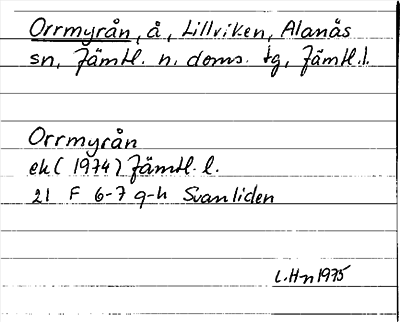 Orrmyrån, å, Lillviken, Alanäs
sn, Jämtl. n. doms. tg, Jämtl.l.
Orrmyrån
ek (1974) Jämtl. l.
21 F 6-7 g-h Svanliden
L.Hn 1975